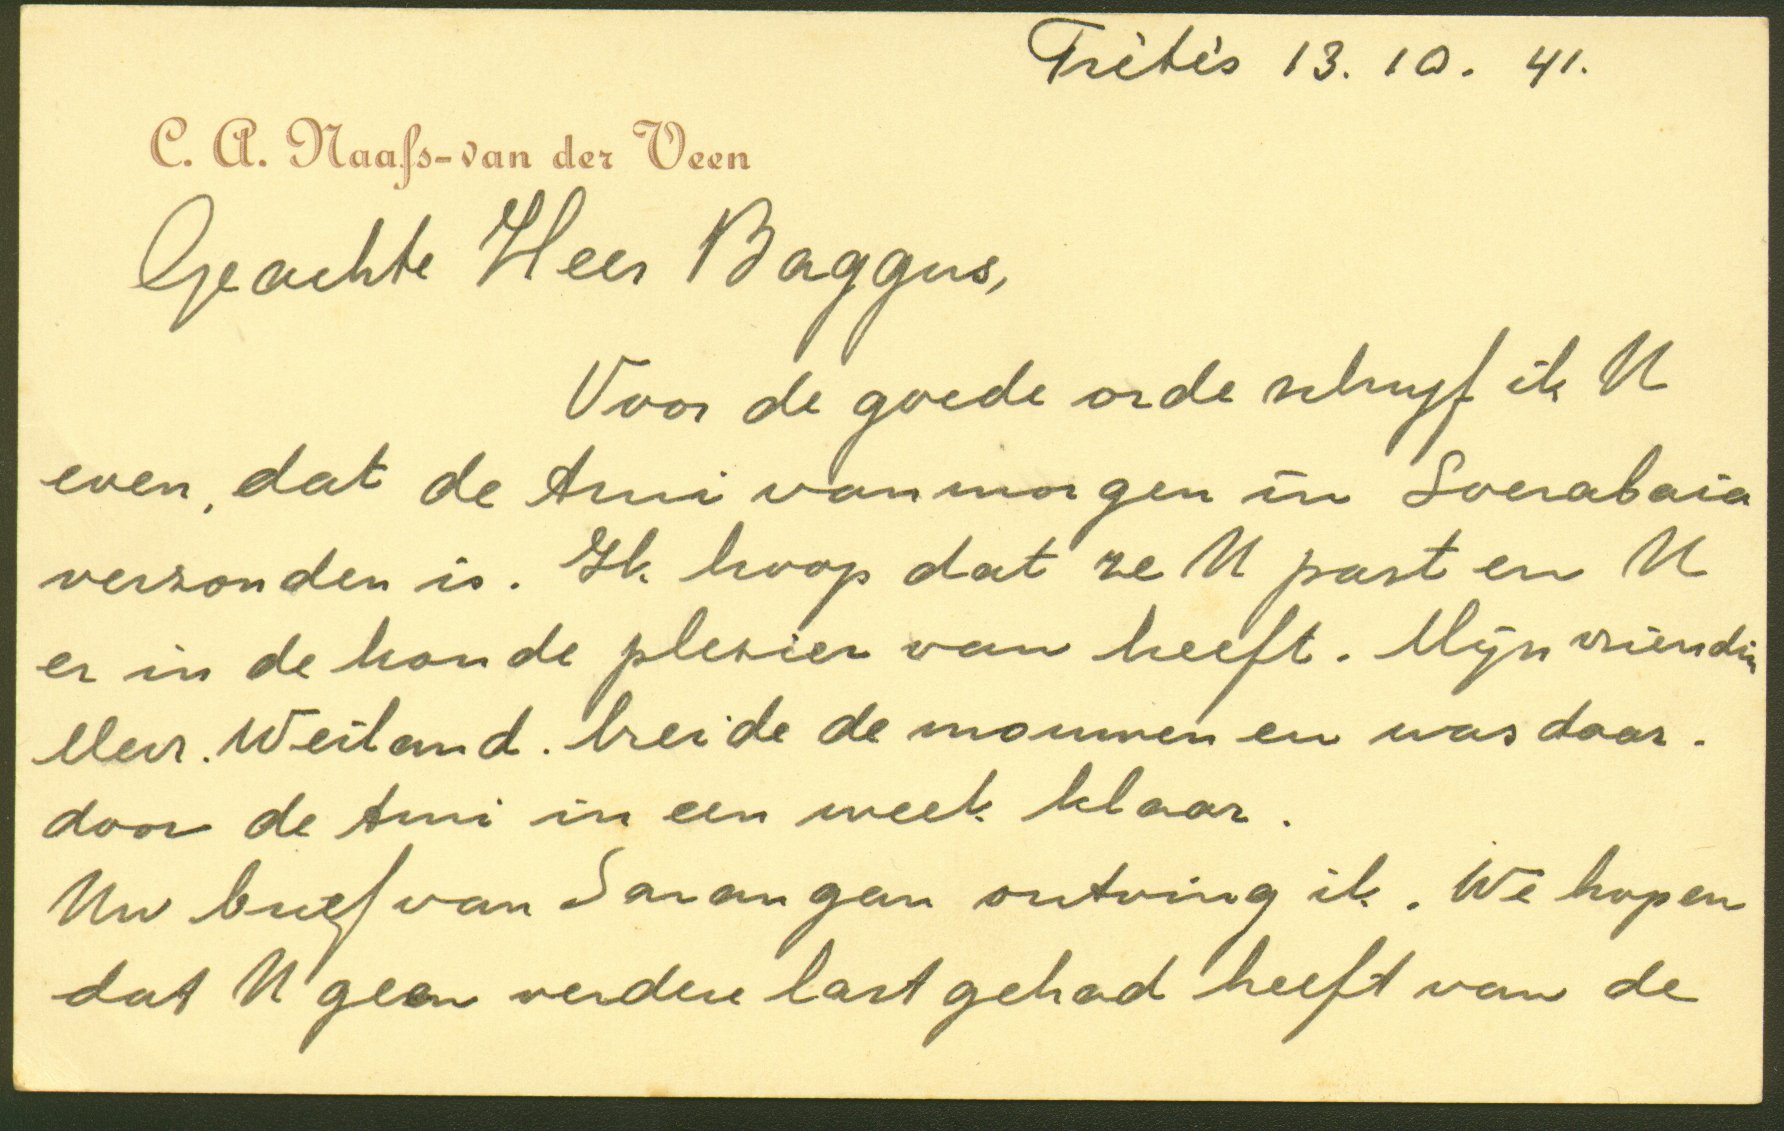 Trètès 13. 10. 41.
C. A. Naaſs-van der Veen
Geachte Heer Baggus,
Voor de goede orde schrijf ik U
even, dat de trui vanmorgen in Soerabaia
verzonden is. Ik hoop dat ze U past en U
er in de koude plezier van heeft. Mijn vriendin
Mevr. Weiland. breide de mouwen en was daar.
door de trui in een week klaar.
Uw brief van Sarangan ontving ik. We hopen
dat U geen verdere last gehad heeft van de